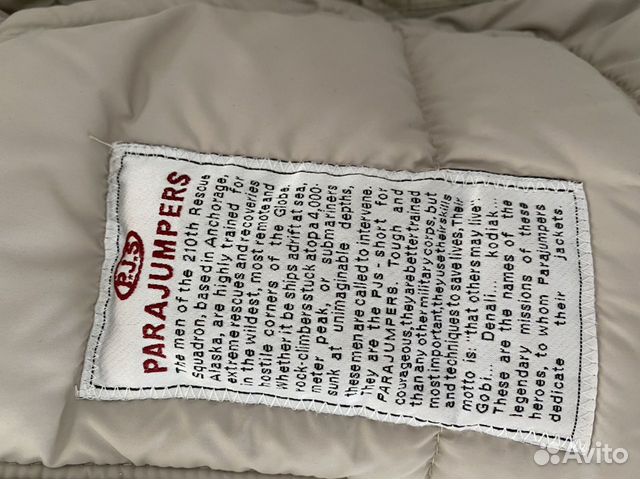 P.J.S
PARAJUMPERS
The men of the 210th Rescue
Squadron, based in Anchorage,
Alaska, are highly trained for
extreme rescues and recoveries
in the wildest, most remote and
hostile corners of the Globe.
Whether it be ships adrift at sea,
rock-climbers stuck atop a 4,000-
meter peak, or submariners
sunk at unimaginable depths,
these men are called to intervene.
They are the PJS - short for
PARAJUMPERS. Tough and
courageous, they are better trained
than any other military corps, but
most important, they use their skills
and techniques to save lives. Their
motto is: "that others may live"
Gobi... Denali... kodiak...
These are the names of the
legendary missions of these
heroes, to whom Parajumpers
dedicate their jackets
Avito